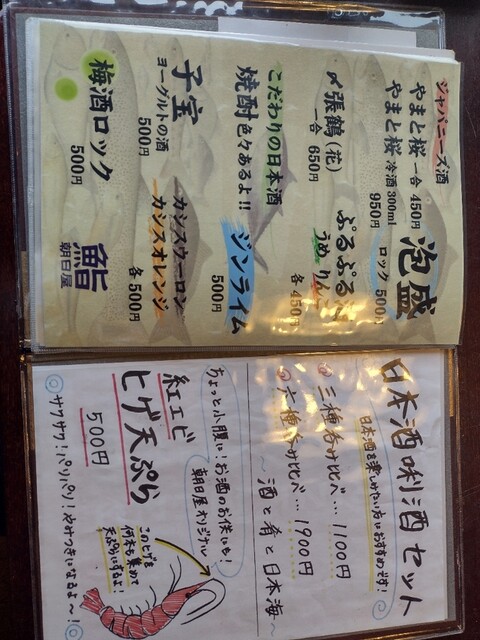 ジャパニーズ酒
やまと桜 一合 450円
やまと桜 冷酒 300ml 950円
〆張鶴(花)
一合 650円
こだわりの日本酒
焼酎 色々あるよ!!
子宝
ヨーグルトの酒
500円
梅酒ロック
500円
泡盛
ロック 500円
ぷるぷる酒
うめ りんご
各 450円
ジンライム
500円
カシスウーロン
カシスオレンジ
各 500円
鮨
朝日屋
日本酒唎酒セット
日本酒を楽しみたい方におすすめです!
三種呑み比べ…1100円
六種呑み比べ…1900円
~酒と肴と日本海~
ちょっと小腹に!お酒のお供にも!
朝日屋オリジナル
紅エビ
ヒゲ天ぷら
500円
このヒゲを
何本も集めて
天ぷらにするよ!
◎サクサク!パリパリ!やみつきになるよ~!◎